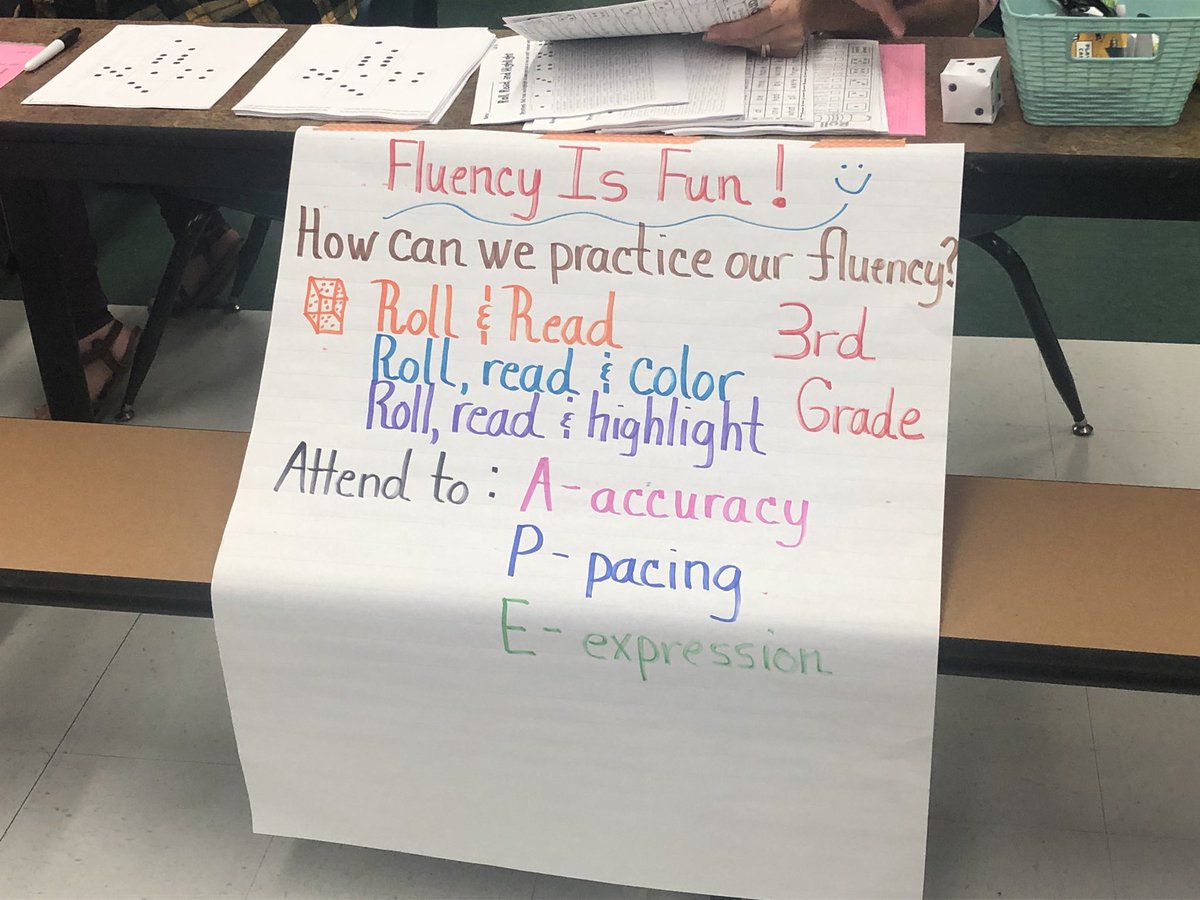 Roll, Read and Highlight
Roll
Fluency Is Fun!
How can we practice our fluency?
Roll & Read
Roll, read & color
Roll, read & highlight
3rd
Grade
Attend to: A-accuracy
P-pacing
E-expression